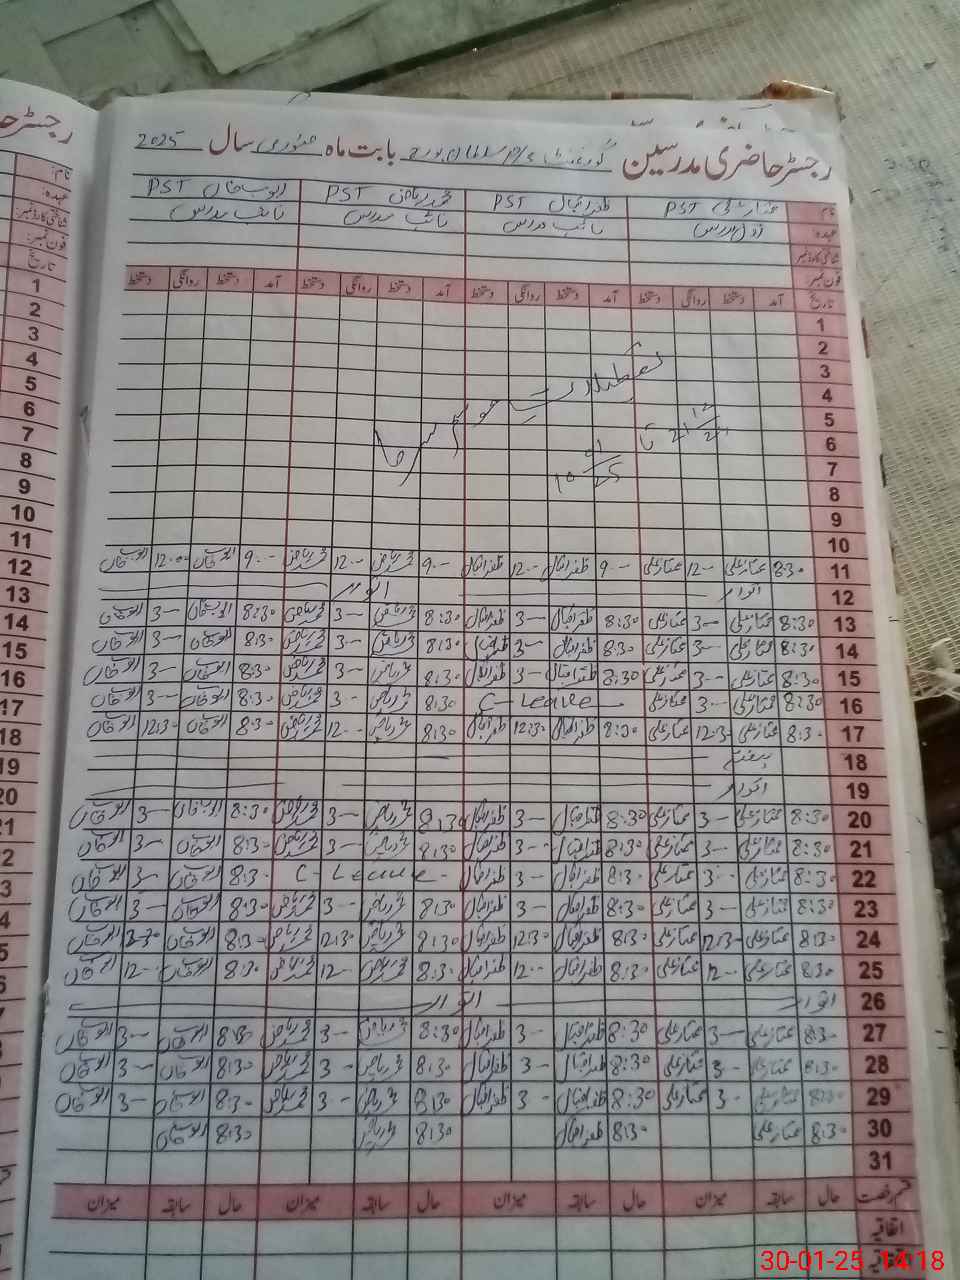 رجسٹر حاضری مدرسین گورنمنٹ P/S بابت ماہ جنوری سال 2025
نام ممتاز علی PST ظفر اقبال PST محمد ریاض PST ایوب خان PST
عہدہ اول مدرس نائب مدرس نائب مدرس نائب مدرس
شناختی کارڈ نمبر
فون نمبر
تاریخ آمد دستخط روانگی دستخط آمد دستخط روانگی دستخط آمد دستخط روانگی دستخط آمد دستخط روانگی دستخط
1
2
3 تعطیلات موسم سرما
4
5 21/12/24 تا
6 10/01/25
7
8
9
10
11 8:30 ممتاز علی 12-- ممتاز علی 9:-- ظفر اقبال 12-- ظفر اقبال 9-- محمد ریاض 12-- محمد ریاض 9:-- ایوب خان 12:00 ایوب خان
12 اتوار اتوار
13 8:30 ممتاز علی 3-- ممتاز علی 8:30 ظفر اقبال 3-- ظفر اقبال 8:30 محمد ریاض 3-- محمد ریاض 8:30 ایوب خان 3-- ایوب خان
14 8:30 ممتاز علی 3-- ممتاز علی 8:30 ظفر اقبال 3-- ظفر اقبال 8:30 محمد ریاض 3-- محمد ریاض 8:30 ایوب خان 3-- ایوب خان
15 8:30 ممتاز علی 3-- ممتاز علی 8:30 ظفر اقبال 3-- ظفر اقبال 8:30 محمد ریاض 3-- محمد ریاض 8:30 ایوب خان 3-- ایوب خان
16 8:30 ممتاز علی 3-- ممتاز علی C-Leave 8:30 محمد ریاض 3-- محمد ریاض 8:30 ایوب خان 3-- ایوب خان
17 8:30 ممتاز علی 12:3- ممتاز علی 8:30 ظفر اقبال 12:30 ظفر اقبال 8:30 محمد ریاض 12-- محمد ریاض 8:30 ایوب خان 12:30 ایوب خان
18 ہفتہ
19 اتوار
20 8:30 ممتاز علی 3-- ممتاز علی 8:30 ظفر اقبال 3-- ظفر اقبال 8:30 محمد ریاض 3-- محمد ریاض 8:30 ایوب خان 3-- ایوب خان
21 8:30 ممتاز علی 3-- ممتاز علی 8:30 ظفر اقبال 3-- ظفر اقبال 8:30 محمد ریاض 3-- محمد ریاض 8:30 ایوب خان 3-- ایوب خان
22 8:30 ممتاز علی 3-- ممتاز علی 8:30 ظفر اقبال 3-- ظفر اقبال C-Leave 8:30 ایوب خان 3-- ایوب خان
23 8:30 ممتاز علی 3-- ممتاز علی 8:30 ظفر اقبال 3-- ظفر اقبال 8:30 محمد ریاض 3-- محمد ریاض 8:30 ایوب خان 3-- ایوب خان
24 8:30 ممتاز علی 12:3- ممتاز علی 8:30 ظفر اقبال 12:30 ظفر اقبال 8:30 محمد ریاض 12:30 محمد ریاض 8:30 ایوب خان 12:30 ایوب خان
25 8:30 ممتاز علی 12-- ممتاز علی 8:30 ظفر اقبال 12:-- ظفر اقبال 8:30 محمد ریاض 12-- محمد ریاض 8:30 ایوب خان 12-- ایوب خان
26 اتوار اتوار
27 8:30 ممتاز علی 3-- ممتاز علی 8:30 ظفر اقبال 3-- ظفر اقبال 8:30 محمد ریاض 3-- محمد ریاض 8:30 ایوب خان 3-- ایوب خان
28 8:30 ممتاز علی 3-- ممتاز علی 8:30 ظفر اقبال 3-- ظفر اقبال 8:30 محمد ریاض 3-- محمد ریاض 8:30 ایوب خان 3-- ایوب خان
29 8:30 ممتاز علی 3-- ممتاز علی 8:30 ظفر اقبال 3-- ظفر اقبال 8:30 محمد ریاض 3-- محمد ریاض 8:30 ایوب خان 3-- ایوب خان
30 8:30 ممتاز علی 8:30 ظفر اقبال 8:30 محمد ریاض 8:30 ایوب خان
31
قسم رخصت حال سابقہ میزان حال سابقہ میزان حال سابقہ میزان حال سابقہ میزان
اتفاقیہ
30-01-25 14:18